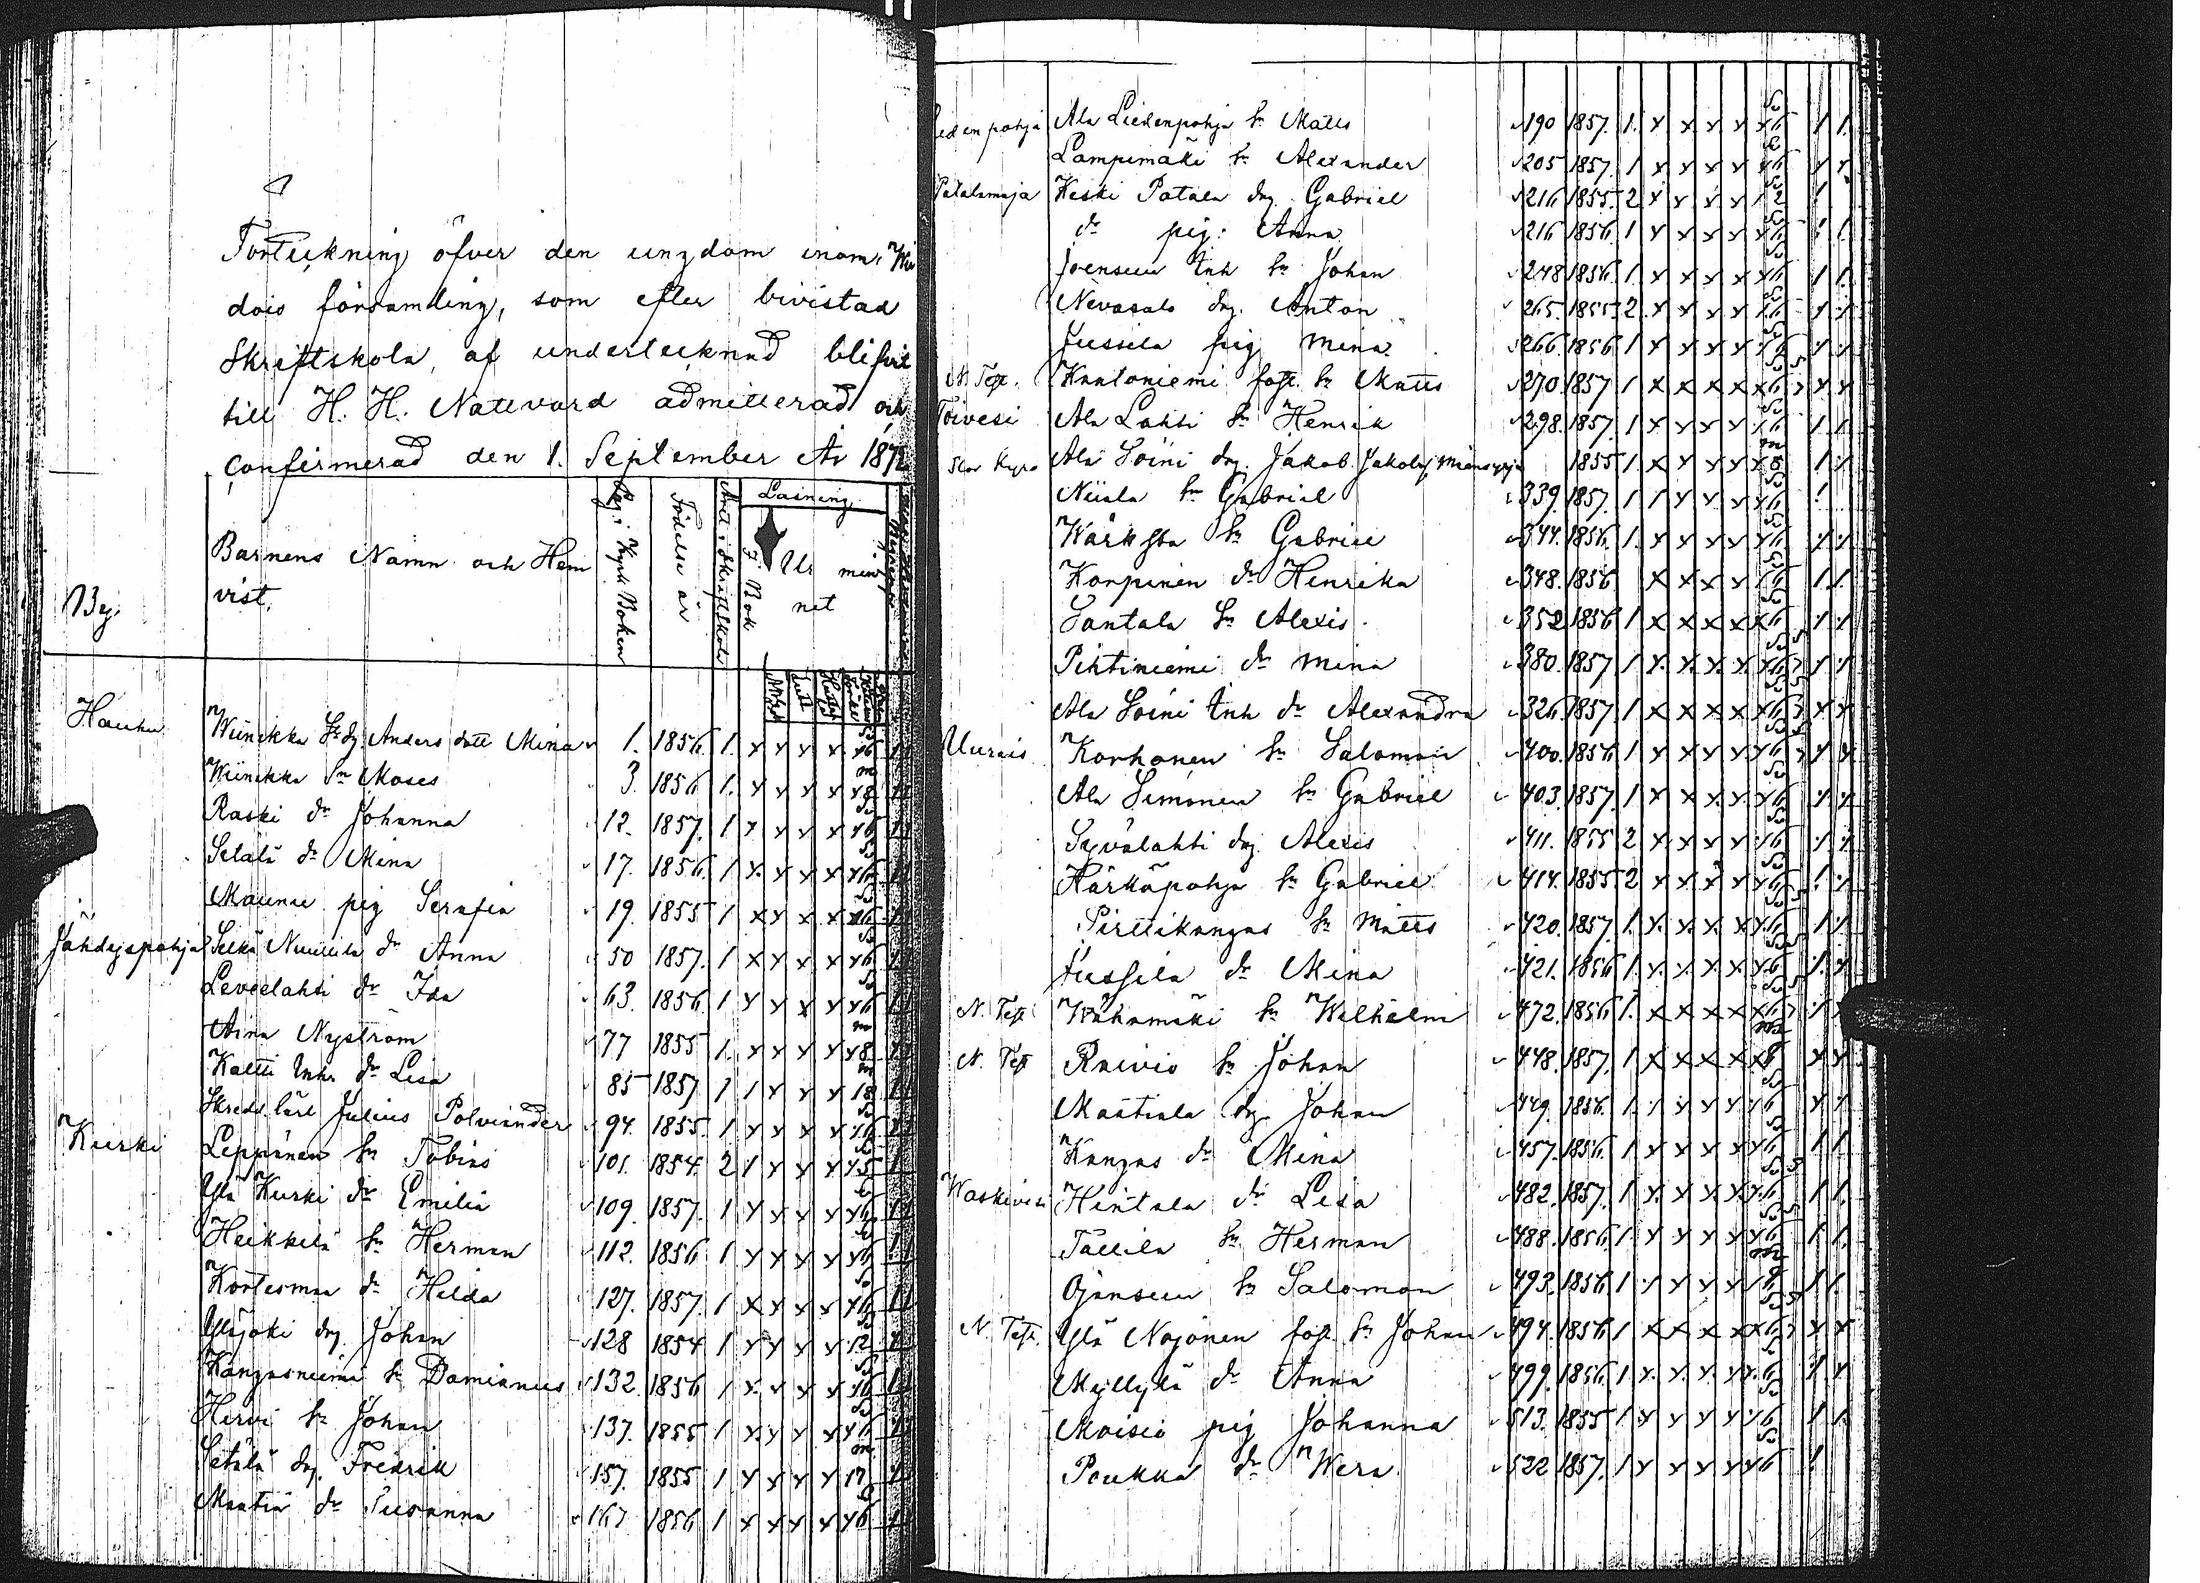 Förteckning öfver den ungdom inom Wir
dois församling, som efter bivistad
Skriftskola, af undertecknad blifvit
till H. H. Nattvard admitterad och
confirmerad den 1. September År 1872
By.
Barnens Namn och Hem
vist.
Pag. i Kyrk Boken
Födelse år
Läsning
I Bok
Ur min
net
Hauhu Wiinikka Anders dott Mina 1. 1856. 1. x x x x x6
Wiinikka Sn Moses 3. 1856 1. x x x x x8
Raski dr Johanna 12. 1857. 1 x x x x x6
Setälä dr Mina 17. 1856. 1 x x x x x6
Maunu pig Serafia 19. 1855 1 x x x x x6
Jähdyspohja Selkä Nuuttila dr Anna 50 1857. 1 x x x x x6
Leveelahti dr Ida 63. 1856. 1 x x x x x6
Aina Nyström 77 1855 1. x x x x x8
Kaltti Inh. dr Lisa 85 1857 1 1 x x x 18
Skrädd. lärl Julius Polviander 94. 1855. 1 x x x x x6
Kurki Leppänen Sn Tobias 101. 1854. 2 1 x x x x5
Ylä Kurki dr Emilia 109. 1857. 1 x x x x x6
Heikkilä Sn Herman 112. 1856 1 x x x x x6
Kortesmaa dr Hilda 127. 1857. 1 x x x x x6
Yläjoki drg Johan 128 1854 1 x x x x 12
Kangasniemi Sn Damianus 132. 1856 1 x x x x x6
Hirvi Sn Johan 137. 1855 1 x x x x x6
Setälä drg. Fredrik 157. 1855 1. x x x x 12
Maatia dr Susanna 167 1856 1 x x x x x6
Liedenpohja Ala Liedenpohja Sn Matts 190 1857. 1. x x x x x6 1 1.
Lampimäki Sn Alexander 205 1857. 1 x x x x x6 x x
Patalamaja Keski Patala drg. Gabriel 216 1855 2 x x x x 12 1
do pig. Anna 216 1856. 1 x x x x x6 1 1.
Joensuu Inh Sn Johan 248 1856. 1 x x x x x6 1 1.
Nevasalo drg. Anton 265. 1855 2 x x x x x6 x x
Jussila pig Mina 266. 1856 1 x x x x x6 x x
N. Test. Kantoniemi fost. Sn Matts 270. 1857 1 x x x x x6 x x
Toivesi Ala Lahti Sn Henrik 298. 1857. 1 x x x x x6 1 1.
Stor Kyro Ala Soini drg. Jakob Jakobs. 1855 1 x x x x x8 1 x
Niiala Sn Gabriel 339. 1857. 1 1 x x x x6 1
Gabriel 344. 1856. 1. x x x x x6 x x
Korpinen dr Henrika 348. 1856 x x x x x6 1 1.
Santala Sn Alexis. 352 1856 1 x x x x x6 1 x
Pihtiniemi dr Mina 380. 1857 1 x x x x x6 x x
Ala Soini Inh dr Alexandra 326. 1857 1 x x x x x6 x x
Uurais Korhonen Sn Salomon 400. 1856 1 x x x x x6 x x
Ala Simonen Sn Gabriel 403. 1857. 1 x x x x x6 x x
Syvälahti drg. Alexis 411. 1855 2 x x x x x6 x x
Härkäpohja Sn Gabriel 414. 1855 2 x x x x x6 1 x
Pirttikangas Sn Matts 420. 1857. 1. x x x x x6 1 x
Jussila dr Mina 421. 1856 1. x x x x x6 x x
N. Test Wähämäki Sn Wilhelm 472. 1856 1. x x x x x6 x x
N. Test Raivio Sn Johan 448. 1857. 1 x x x x x8 x x
Maatiala drg Johan 449. 1856. 1. 1 x x x x6 x x
Kangas dr Mina 457. 1856. 1 x x x x x6 1 1.
Waskivesi Hintala dr Lisa 482. 1857. 1 x x x x x6 1 1.
Tallila Sn Herman 488. 1856. 1 x x x x x6 1 1.
Ojansuu Sn Salomon 493. 1856 1 1 x x x 1 1.
N. Test. Ylä Nojonen fost. Sn Johan 494. 1856 1 x x x x x6 x x
Myllylä dr Anna 499. 1856. 1 x x x x x6 1 x
Moisio pig Johanna 513. 1855 1 x x x x x6 1 1.
Poukka dr Wera 522 1857. 1 x x x x x6 1